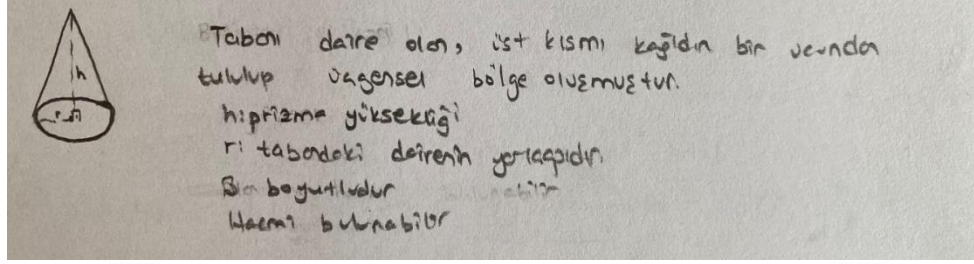 h
r
Tabanı daire olan, üst kısmı kağıdın bir ucundan
tutulup üçgensel bölge oluşmuştur.
h: prizma yüksekliği
r: tabandaki dairenin yarıçapıdır.
3 boyutludur
Hacmi bulunabilir